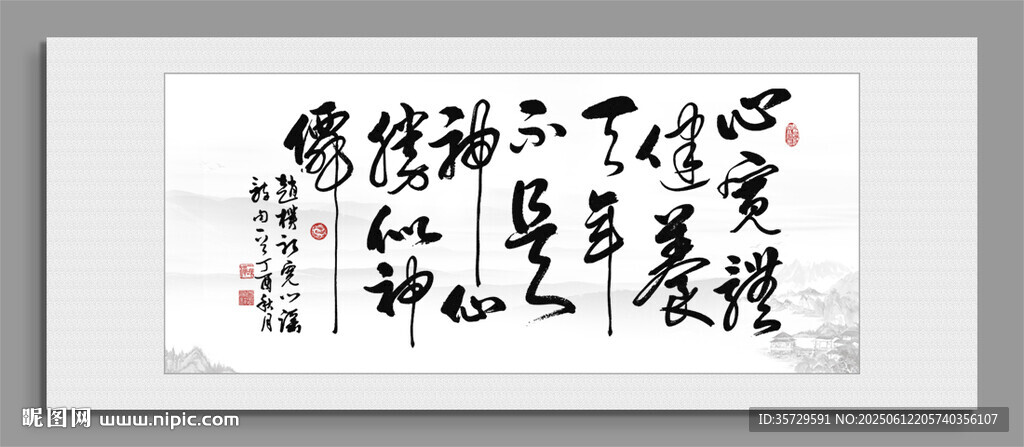 心寬體
健養
天年
不是
神仙
勝似神
僊
趙樸初寬心謠
詩句一 丁酉秋月
昵图网 www.nipic.com
ID:35729591 NO:20250612205740356107